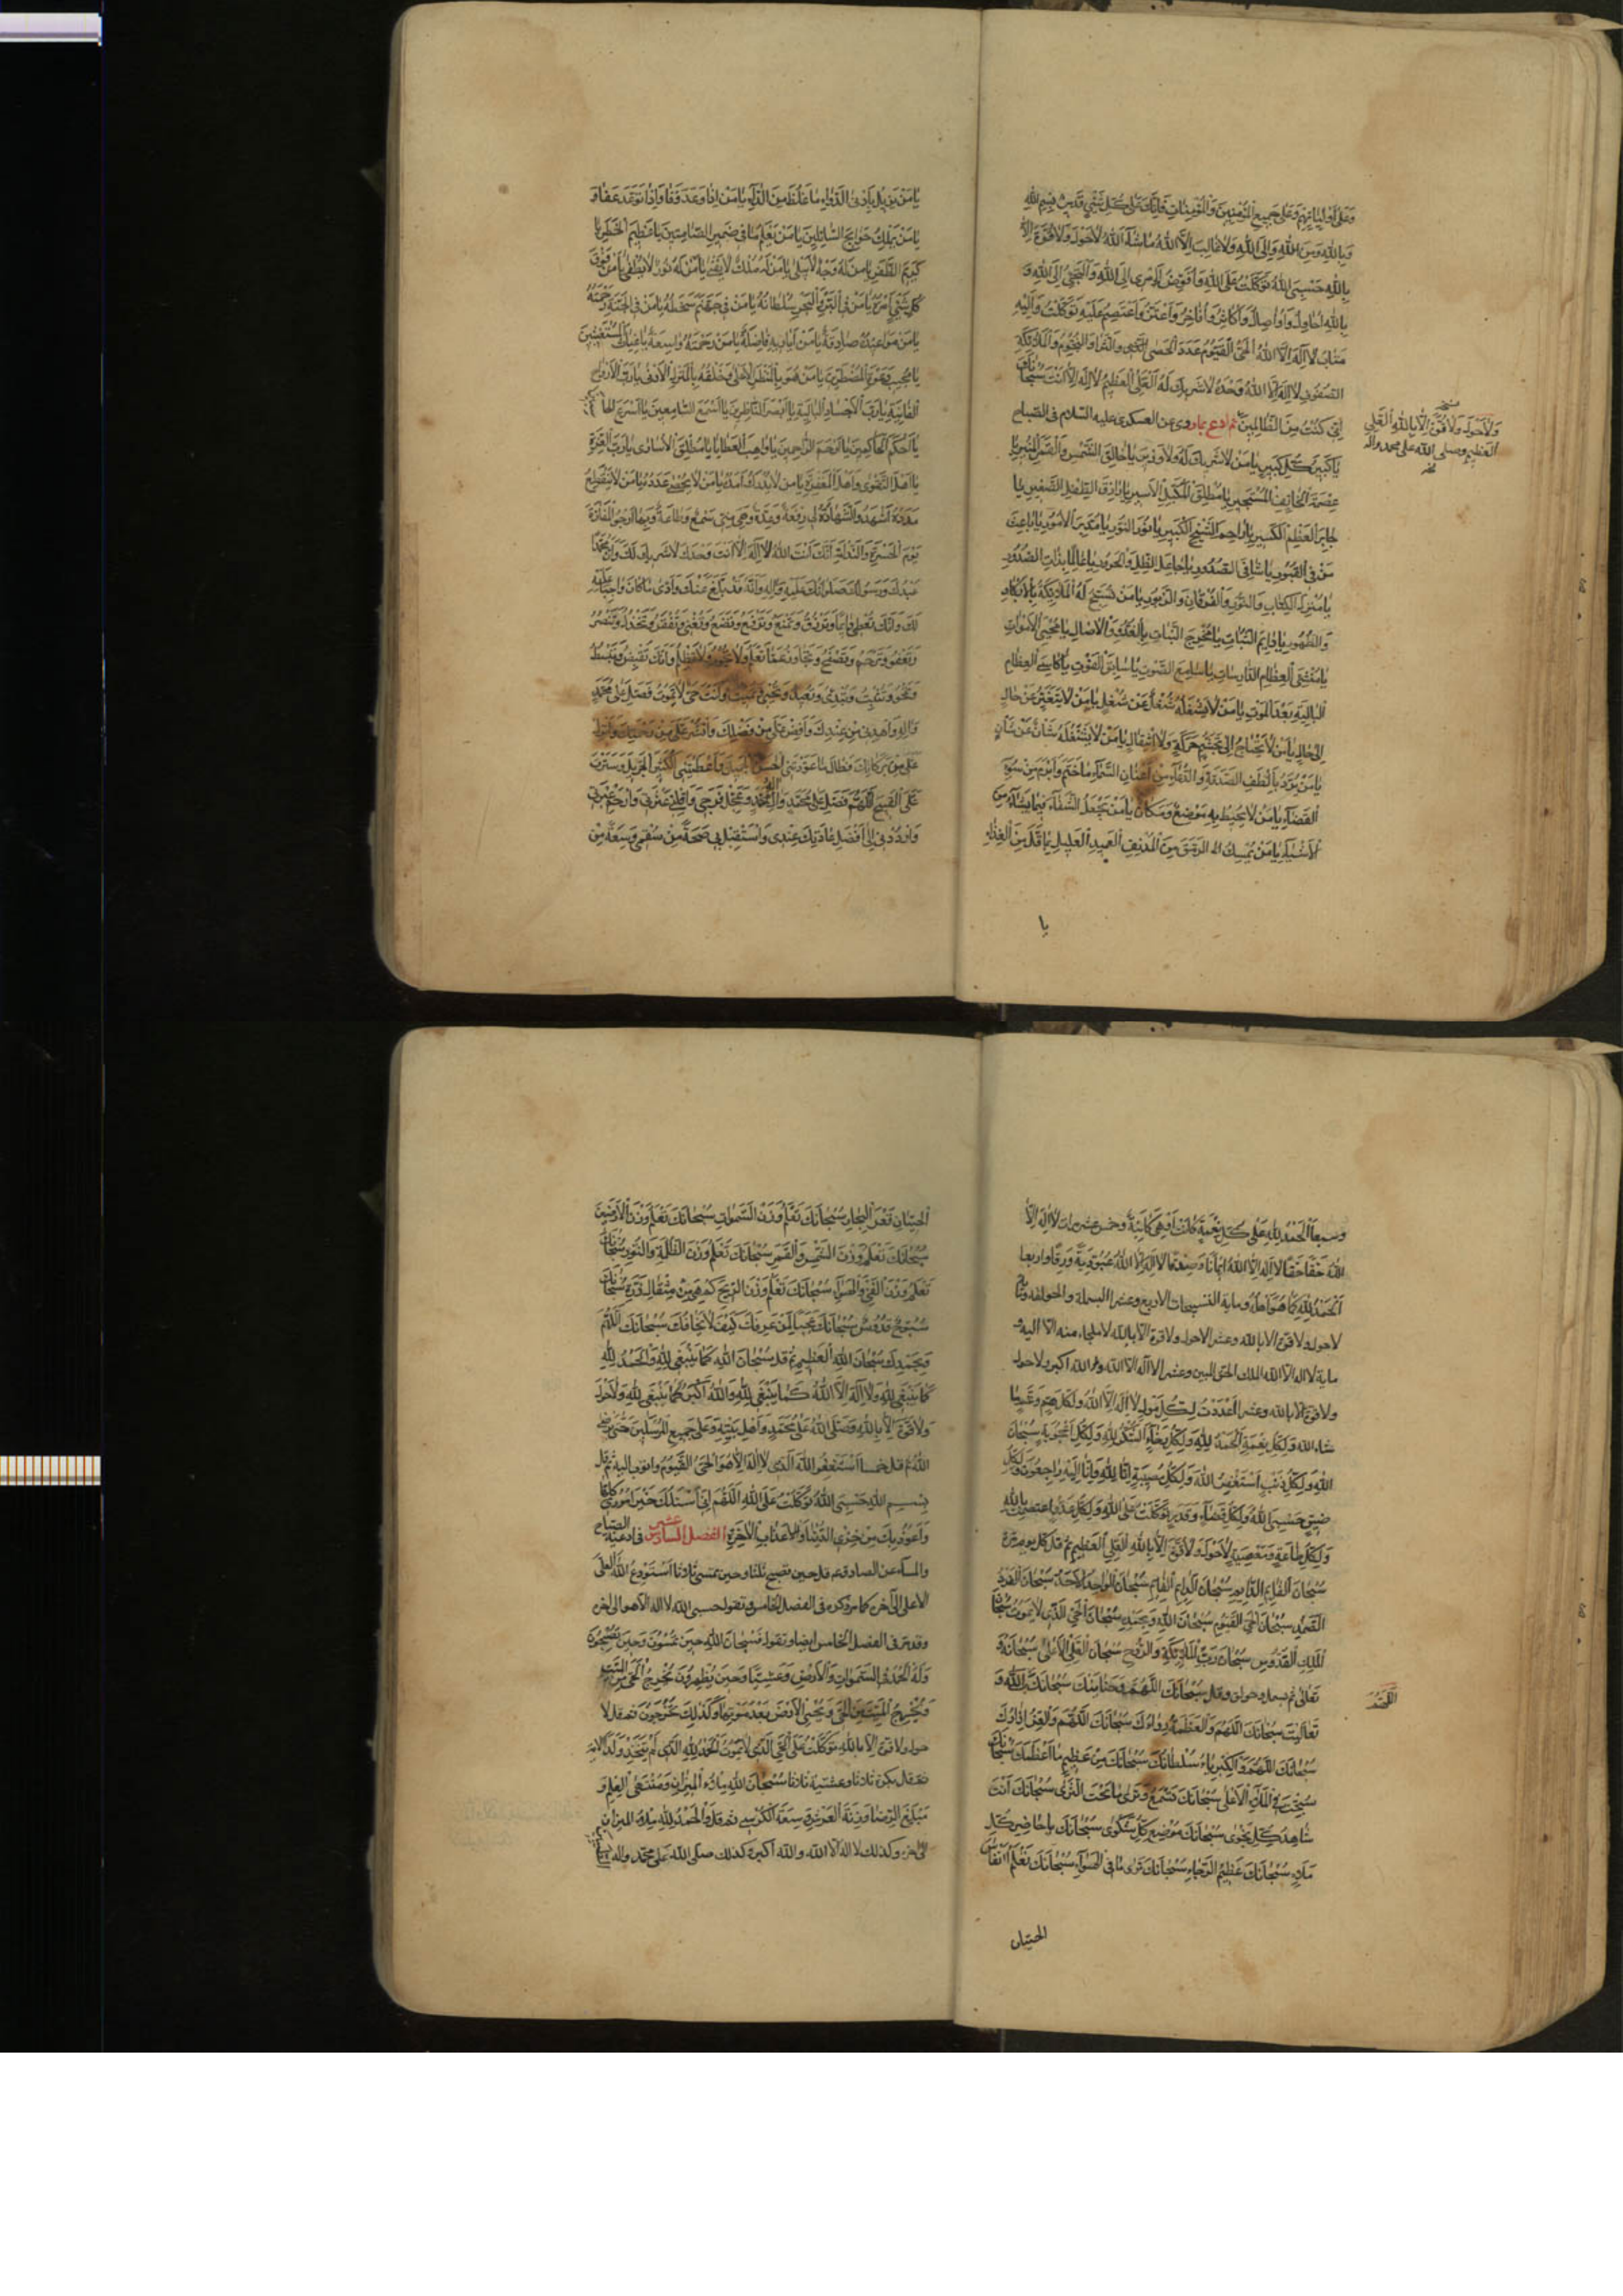 وَعَلى اَوْلِيائِهِمْ وَعَلى جَميعِ الْمُؤْمِنينَ وَالْمُؤْمِناتِ فَاِنَّكَ عَلى كُلِّ شَيْءٍ قَديرٌ بِسْمِ اللهِ
وَبِاللهِ وَمِنَ اللهِ وَاِلَى اللهِ وَلا غالِبَ اِلَّا اللهُ ما شآءَ اللهُ لا حَوْلَ وَلا قُوَّةَ اِلّا
بِاللهِ حَسْبِيَ اللهُ تَوَكَّلْتُ عَلَى اللهِ وَاُفَوِّضُ اَمْري اِلَى اللهِ وَاَلْتَجِئُ اِلَى اللهِ وَ
بِاللهِ اُحاوِلُ وَاُصاوِلُ وَاُكاثِرُ وَاُفاخِرُ وَاَعْتَزُّ وَاَعْتَصِمُ عَلَيْهِ تَوَكَّلْتُ وَاِلَيْهِ
مَتابِ لا اِلهَ اِلَّا اللهُ الْحَيُّ الْقَيُّومُ عَدَدَ الْحَصى وَالثَّرى وَالنُّجُومِ وَالْمَلائِكَةِ
الصُّفُوفِ لا اِلهَ اِلَّا اللهُ وَحْدَهُ لا شَريكَ لَهُ الْعَلِيُّ الْعَظيمُ لا اِلهَ اِلّا اَنْتَ سُبْحانَكَ
اِنّي كُنْتُ مِنَ الظّالِمينَ ثم ادع بما روى عن العسكري عليه السلام في الصباح
يا كَبيرَ كُلِّ كَبيرٍ يا مَنْ لا شَريكَ لَهُ وَلا وَزيرَ يا خالِقَ الشَّمْسِ وَالْقَمَرِ الْمُنيرِ يا
عِصْمَةَ الْخائِفِ الْمُسْتَجيرِ يا مُطْلِقَ الْمُكَبَّلِ الْاَسيرِ يا رازِقَ الطِّفْلِ الصَّغيرِ يا
جابِرَ الْعَظْمِ الْكَسيرِ يا راحِمَ الشَّيْخِ الْكَبيرِ يا نُورَ النُّورِ يا مُدَبِّرَ الْاُمُورِ يا باعِثَ
مَنْ فِي الْقُبُورِ يا شافِيَ الصُّدُورِ يا جاعِلَ الظِّلِّ وَالْحَرُورِ يا عالِمًا بِذاتِ الصُّدُورِ
يا مُنْزِلَ الْكِتابِ وَالنُّورِ وَالْفُرْقانِ وَالزَّبُورِ يا مَنْ تُسَبِّحُ لَهُ الْمَلائِكَةُ بِالْاِبْكارِ
وَالظُّهُورِ يا دائِمَ الثَّباتِ يا مُخْرِجَ النَّباتِ بِالْغُدُوِّ وَالْاصالِ يا مُحْيِيَ الْاَمْواتِ
يا مُنْشِئَ الْعِظامِ الدّارِساتِ يا سامِعَ الصَّوْتِ يا سابِقَ الْفَوْتِ يا كاسِيَ الْعِظامِ
الْبالِيَةِ بَعْدَ الْمَوْتِ يا مَنْ لا يَشْغَلُهُ شُغْلٌ عَنْ شُغْلٍ يا مَنْ لا يَتَغَيَّرُ مِنْ حالٍ
اِلى حالٍ يا مَنْ لا يَحْتاجُ اِلى تَجَشُّمِ حَرَكَةٍ وَلَا انْتِقالٍ يا مَنْ لا يَشْغَلُهُ شَأْنٌ عَنْ شَأْنٍ
يا مَنْ يَرُدُّ بِاَلْطَفِ الصَّدَقَةِ وَالدُّعآءِ عَنْ اَعْنانِ السَّمآءِ ما حَتَمَ وَاَبْرَمَ مِنْ سُوۤءِ
الْقَضآءِ يا مَنْ لا يُحيطُ بِهِ مَوْضِعٌ وَمَكانٌ يا مَنْ يَجْعَلُ الشِّفآءَ فيما يَشآءُ مِنَ
الْاَشْيآءِ يا مَنْ يُمْسِكُ الرَّمَقَ مِنَ الْمُدْنِفِ الْعَميدِ الْعَليلِ بِما قَلَّ مِنَ الْغِذآءِ
يا
وَلا حَوْلَ وَلا قُوَّةَ اِلّا بِاللهِ الْعَلِيِّ
الْعَظيمِ وصلى الله على محمد وآله
يا مَنْ يُزيلُ بِاَدْنَى الدَّوآءِ ما غَلُظَ مِنَ الدّآءِ يا مَنْ اِذا وَعَدَ وَفا وَاِذا تَوَعَّدَ عَفا وَ
يا مَنْ يَمْلِكُ حَوائِجَ السّائِلينَ يا مَنْ يَعْلَمُ ما في ضَميرِ الصّامِتينَ يا عَظيمَ الْخَطَرِ يا
كَريمَ الظَّفَرِ يا مَنْ لَهُ وَجْهٌ لا يَبْلى يا مَنْ لَهُ مُلْكٌ لا يَفْنى يا مَنْ لَهُ نُورٌ لا يُطْفى يا مَنْ فَوْقَ
كُلِّ شَيْءٍ اَمْرُهُ يا مَنْ فِي الْبَرِّ وَالْبَحْرِ سُلْطانُهُ يا مَنْ في جَهَنَّمَ سَخَطُهُ يا مَنْ فِي الْجَنَّةِ رَحْمَتُهُ
يا مَنْ مَواعيدُهُ صادِقَةٌ يا مَنْ اَياديهِ فاضِلَةٌ يا مَنْ رَحْمَتُهُ واسِعَةٌ يا غِياثَ الْمُسْتَغيثينَ
يا مُجيبَ دَعْوَةِ الْمُضْطَرّينَ يا مَنْ هُوَ بِالْمَنْظَرِ الْاَعْلى وَخَلْقُهُ بِالْمَنْزِلِ الْاَدْنى يا رَبَّ الْاَرْواحِ
الْفانِيَةِ يا رَبَّ الْاَجْسادِ الْبالِيَةِ يا اَبْصَرَ النّاظِرينَ يا اَسْمَعَ السّامِعينَ يا اَسْرَعَ الحا
يا اَحْكَمَ الْحاكِمينَ يا اَرْحَمَ الرّاحِمينَ يا واهِبَ الْعَطايا يا مُطْلِقَ الْاُسارى يا رَبَّ الْعِزَّةِ
يا اَهْلَ التَّقْوى وَاَهْلَ الْمَغْفِرَةِ يا مَنْ لا يُدْرَكُ اَمَدُهُ يا مَنْ لا يُحْصى عَدَدُهُ يا مَنْ لا يَنْقَطِعُ
مَدَدُهُ اَشْهَدُ وَالشَّهادَةُ لي رِفْعَةٌ وَعُدَّةٌ وَهِيَ مِنّي سَمْعٌ وَطاعَةٌ وَبِها اَرْجُو الْمَفازَةَ
يَوْمَ الْحَسْرَةِ وَالنَّدامَةِ اَنَّكَ اَنْتَ اللهُ لا اِلهَ اِلّا اَنْتَ وَحْدَكَ لا شَريكَ لَكَ وَاَنَّ مُحَمَّدًا
عَبْدُكَ وَرَسُولُكَ صَلَواتُكَ عَلَيْهِ وَآلِهِ وَاَنَّهُ قَدْ بَلَّغَ عَنْكَ وَاَدّى ما كانَ واجِبًا عَلَيْهِ
لَكَ وَاَنَّكَ تُعْطي دائِمًا وَتَرْزُقُ وَتَمْنَعُ وَتَرْفَعُ وَتَضَعُ وَتُغْني وَتُفْقِرُ وَتَخْذُلُ وَتَنْصُرُ
وَتَعْفُو وَتَرْحَمُ وَتَصْفَحُ وَتَجاوَزُ عَمّا تَعْلَمُ وَلا تَجُورُ وَلا تَظْلِمُ وَاَنَّكَ تَقْبِضُ وَتَبْسُطُ
وَتَمْحُو وَتُثْبِتُ وَتُبْدِئُ وَتُعيدُ وَتُحْيي وَتُميتُ وَاَنْتَ حَيٌّ لا تَمُوتُ فَصَلِّ عَلى مُحَمَّدٍ
وَآلِهِ وَاهْدِني مِنْ عِنْدِكَ وَاَفِضْ عَلَيَّ مِنْ فَضْلِكَ وَانْشُرْ عَلَيَّ مِنْ رَحْمَتِكَ وَاَنْزِلْ
عَلَيَّ مِنْ بَرَكاتِكَ فَطالَ ما عَوَّدْتَنِي الْحَسَنَ الْجَميلَ وَاَعْطَيْتَنِي الْكَثيرَ الْجَزيلَ وَسَتَرْتَ
عَلَيَّ الْقَبيحَ اَللّهُمَّ فَصَلِّ عَلى مُحَمَّدٍ وَآلِ مُحَمَّدٍ وَعَجِّلْ فَرَجي وَاَقِلْني عَثْرَتي وَارْحَمْ غُرْبَتي
وَارْدُدْني اِلى اَفْضَلِ عادَتِكَ عِنْدي وَاسْتَقْبِلْ بي صِحَّةً مِنْ سُقْمي وَسَعَةً مِنْ
وسبعا اَلْحَمْدُ لِلّهِ عَلى كُلِّ نِعْمَةٍ كانَتْ اَوْ هِيَ كائِنَةٌ وخمس عشر مرات لا اِلهَ اِلَّا
اللهُ حَقًّا حَقًّا لا اِلهَ اِلَّا اللهُ ايمانًا وَصِدْقًا لا اِلهَ اِلَّا اللهُ عُبُودِيَّةً وَرِقًّا واربعا
اَلْحَمْدُ لِلّهِ كَما هُوَ اَهْلُهُ ومائة التسبيحات الاربع وعشرا البسملة والحولقة
لا حول ولا قوة الا بالله وعشر لا حول ولا قوة الا بالله لا ملجاء منه الا اليه و
ماية لا اله الا الله الملك الحق المبين وعشر لا اله الا الله والله اكبر ولا حول
ولا قوة الا بالله وعشر اَعْدَدْتُ لِكُلِّ هَوْلٍ لا اِلهَ اِلَّا اللهُ وَلِكُلِّ هَمٍّ وَغَمٍّ ما
شاء الله وَلِكُلِّ نِعْمَةٍ الْحَمْدُ لِلّهِ وَلِكُلِّ رَخآءٍ الشُّكْرُ لِلّهِ وَلِكُلِّ اُعْجُوبَةٍ سُبْحانَ
اللهِ وَلِكُلِّ ذَنْبٍ اَسْتَغْفِرُ اللهَ وَلِكُلِّ مُصيبَةٍ اِنّا لِلّهِ وَاِنّا اِلَيْهِ راجِعُونَ وَلِكُلِّ
ضيقٍ حَسْبِيَ اللهُ وَلِكُلِّ قَضآءٍ وَقَدَرٍ تَوَكَّلْتُ عَلَى اللهِ وَلِكُلِّ عَدُوٍّ اعتصمت بالله
وَلِكُلِّ طاعَةٍ وَمَعْصِيَةٍ لا حَوْلَ وَلا قُوَّةَ اِلّا بِاللهِ الْعَلِيِّ الْعَظيمِ ثم قل كل يوم مرة
سُبْحانَ الْقآئِمِ الدّآئِمِ سُبْحانَ الدّآئِمِ الْقآئِمِ سُبْحانَ الْواحِدِ الْاَحَدِ سُبْحانَ الْفَرْدِ
الصَّمَدِ سُبْحانَ الْحَيِّ الْقَيُّومِ سُبْحانَ اللهِ وَبِحَمْدِهِ سُبْحانَ الْحَيِّ الَّذي لا يَمُوتُ سُبْحانَ
الْمَلِكِ الْقُدُّوسِ سُبْحانَ رَبِّ الْمَلائِكَةِ وَالرُّوحِ سُبْحانَ الْعَلِيِّ الْاَعْلى سُبْحانَهُ وَ
تَعالى ثم بسمل وحولق وقل سُبْحانَكَ اللّهُمَّ وَحَنانَيْكَ سُبْحانَكَ اللّهُمَّ وَ
تَعالَيْتَ سُبْحانَكَ اللّهُمَّ وَالْعَظَمَةُ رِداؤُكَ سُبْحانَكَ اللّهُمَّ وَالْعِزُّ اِزارُكَ
سُبْحانَكَ اللّهُمَّ وَالْكِبْرِيآءُ سُلْطانُكَ سُبْحانَكَ مِنْ عَظيمٍ ما اَعْظَمَكَ سُبْحانَكَ
سُبِّحْتَ فِي الْمَلَاِ الْاَعْلى سُبْحانَكَ تَسْمَعُ وَتَرى ما تَحْتَ الثَّرى سُبْحانَكَ اَنْتَ
شاهِدُ كُلِّ نَجْوى سُبْحانَكَ مَوْضِعُ كُلِّ شَكْوى سُبْحانَكَ حاضِرُ كُلِّ
مَلَإٍ سُبْحانَكَ عَظيمُ الرَّجآءِ سُبْحانَكَ تَرى ما في الهوآءِ سُبْحانَكَ تَعْلَمُ اَنْفاسَ
الحيتان
اللّهُمَّ
الْحيتانِ في قَعْرِ الْبِحارِ سُبْحانَكَ تَعْلَمُ وَزْنَ السَّمواتِ سُبْحانَكَ تَعْلَمُ وَزْنَ الْاَرَضينَ
سُبْحانَكَ تَعْلَمُ وَزْنَ الشَّمْسِ وَالْقَمَرِ سُبْحانَكَ تَعْلَمُ وَزْنَ الظُّلْمَةِ وَالنُّورِ سُبْحانَكَ
تَعْلَمُ وَزْنَ الْفَيْءِ وَالْهَوآءِ سُبْحانَكَ تَعْلَمُ وَزْنَ الرّيحِ كَمْ هِيَ مِنْ مِثْقالِ ذَرَّةٍ سُبْحانَكَ
سُبُّوحٌ قُدُّوسٌ سُبْحانَكَ عَجَبًا لِمَنْ عَرَفَكَ كَيْفَ لا يَخافُكَ سُبْحانَكَ اللّهُمَّ
وَبِحَمْدِكَ سُبْحانَ اللهِ الْعَظيمِ ثم قل سُبْحانَ اللهِ كَما يَنْبَغي لِلّهِ وَالْحَمْدُ لِلّهِ
كَما يَنْبَغي لِلّهِ وَلا اِلهَ اِلَّا اللهُ كَما يَنْبَغي لِلّهِ وَاللهُ اَكْبَرُ كَما يَنْبَغي لِلّهِ وَلا حَوْلَ
وَلا قُوَّةَ اِلّا بِاللهِ وَصَلَّى اللهُ عَلى مُحَمَّدٍ وَاَهْلِ بَيْتِهِ وَعَلى جَميعِ الْمُرْسَلينَ حَتّى يرضى
اللهُ ثم قل خمسا اَسْتَغْفِرُ اللهَ الَّذي لا اِلهَ اِلّا هُوَ الْحَيُّ الْقَيُّومُ واتوب اليه ثم قل
بِسْمِ اللهِ حَسْبِيَ اللهُ تَوَكَّلْتُ عَلَى اللهِ اَللّهُمَّ اِنّي اَسْئَلُكَ خَيْرَ اُمُوري كُلِّها
وَاَعُوذُ بِكَ مِنْ خِزْيِ الدُّنْيا وَعَذابِ الْاخِرَةِ الفصل السادس عشر في ادعية الصباح
والمسآء عن الصادق ع قل حين تصبح ثلثا وحين تمسي ثلاثا اَسْتَوْدِعُ اللهَ الْعَلِيَّ
الاعلى الى آخره كما مر ذكره في الفصل الخامس وتقول حسبي الله لا اله الا هو الى اخره
وقد مر في الفصل الخامس ايضا وتقول فَسُبْحانَ اللهِ حينَ تُمْسُونَ وَحينَ تُصْبِحُونَ
وَلَهُ الْحَمْدُ فِي السَّمواتِ وَالْاَرْضِ وَعَشِيًّا وَحينَ تُظْهِرُونَ يُخْرِجُ الْحَيَّ مِنَ الْمَيِّتِ
وَيُخْرِجُ الْمَيِّتَ مِنَ الْحَيِّ وَيُحْيِي الْاَرْضَ بَعْدَ مَوْتِها وَكَذلِكَ تُخْرَجُونَ ثم قل لا
حول ولا قوة الا بالله تَوَكَّلْتُ عَلَى الْحَيِّ الَّذي لا يَمُوتُ الْحَمْدُ لِلّهِ الَّذي لَمْ يَتَّخِذْ وَلَدًا الاية
ثم قل بكرة ثلاثا وعشية ثلاثا سُبْحانَ اللهِ مِلْءَ الْميزانِ وَمُنْتَهَى الْعِلْمِ وَ
مَبْلَغَ الرِّضا وَزِنَةَ الْعَرْشِ وَسَعَةَ الْكُرْسِيِّ ثم قل وَالْحَمْدُ لِلّهِ مِلْءَ الميزان
الى اخره وكذلك لا اله الا الله والله اكبر وكذلك صلى الله على محمد وآله